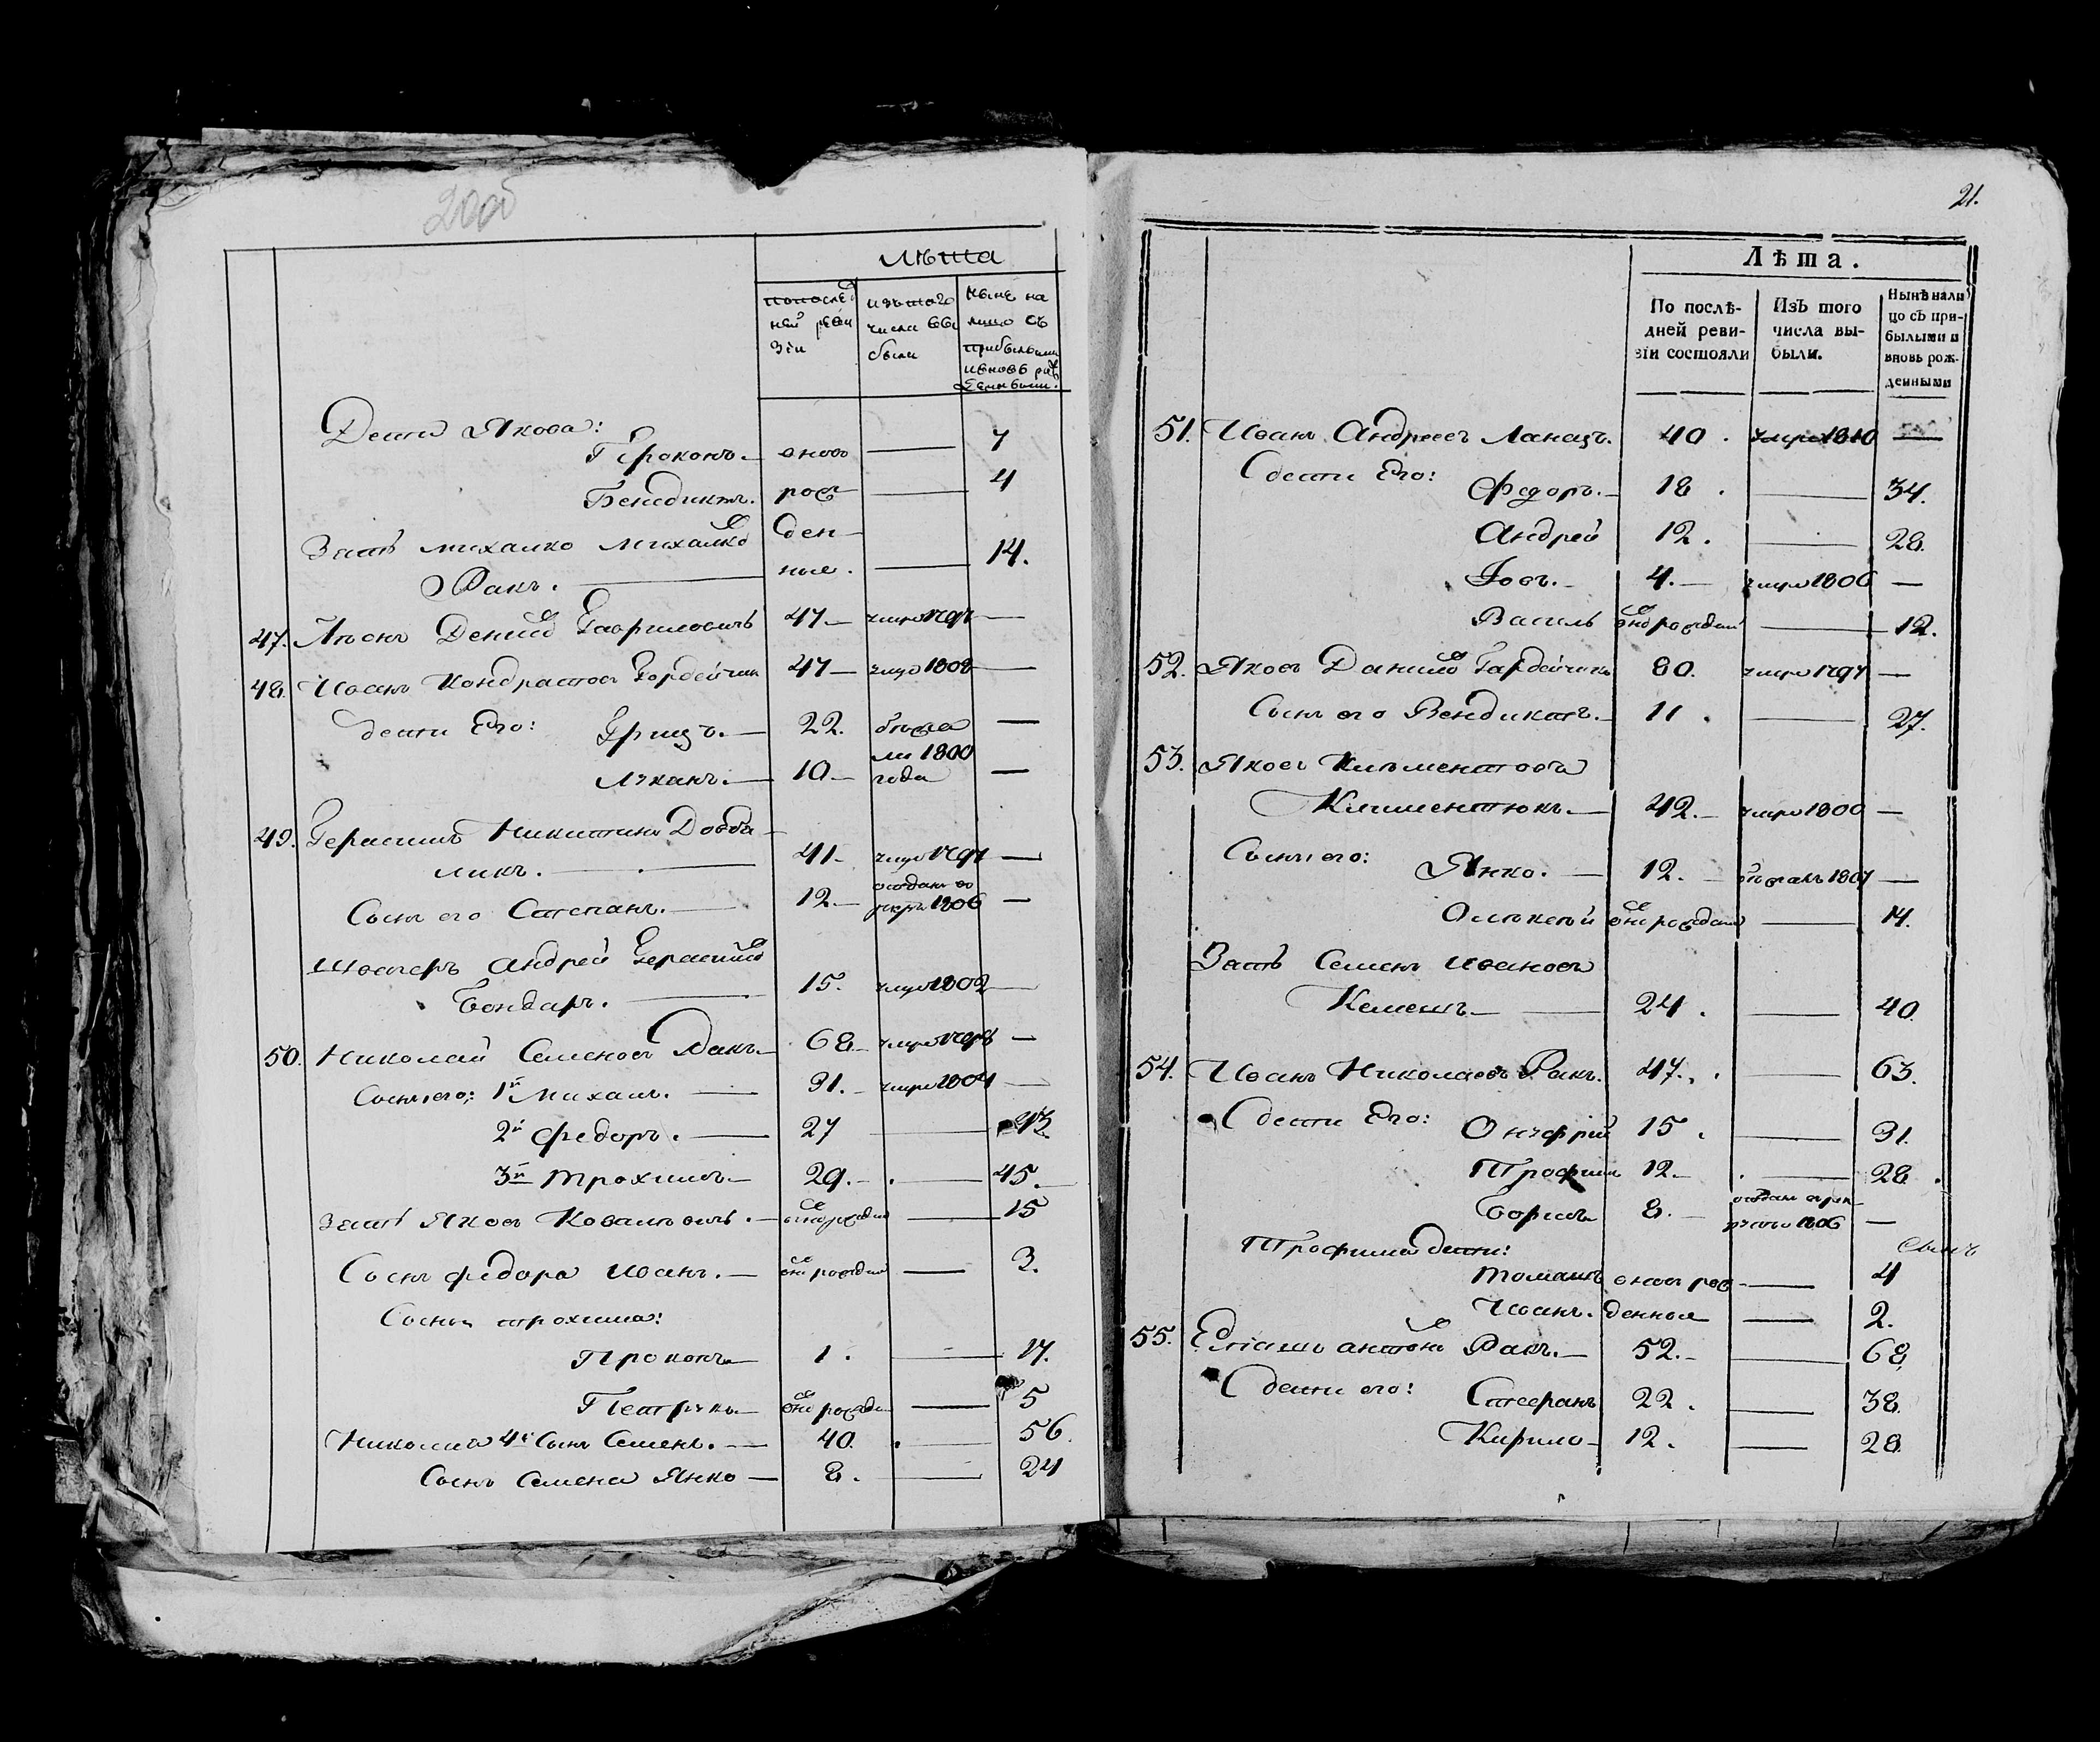 2000
Лѣта
попослѣд
ней реви
зіи
изъ того
числа вы
были
Нынѣ на
лицо съ
прибылыми
ивновь рож
денными.
Дети Якова:
Прокопъ. вново — 7
Бенедиктъ. рож — 4
Зять михалко Михалко
Ракъ. — ден
ные. — 14.
47. Денис Гавриловичъ 47 — умре 1797 —
48. Иванъ Кондратовъ Гордейчик 47 — умре 1808 —
дети Его: Грицъ. — 22. бежа —
Луканъ. — 10 — ли 1800
года —
49. Герасимъ Никитинъ Довба-
ликъ. — 41 — умре 1797 —
Сынъ его Степанъ. — 12 — отданъ во
рекр 1806 —
Швагеръ Андрей Герасимов
Бондарь. — 15. умре 1802 —
50. Николай Семеновъ Ракъ. — 68 — умре 1798 —
Сыны его: 1й Михаил. — 31. — умре 1804 —
2й Федоръ. — 27 — 43.
3й Трохимъ. — 29. — 45.
Зять Яков Ковалевичъ. — вновь рожден — 15
Сынъ Федора Иванъ. — внов рожден — 3.
Сыны трохима:
Прокопъ — 1. — 17.
Петрукъ — внов рожден — 5
Николая 4й Сынъ Семенъ. — 40. — 56.
Сынъ Семена Янко — 8. — 24
21.
Лѣта.
По послѣ-
дней реви-
зіи состояли
Изъ того
числа вы-
были.
Нынѣ нали
цо съ при-
былыми и
вновь рож-
денными
51. Иванъ Андреевъ Ланецъ. 40. умре 1810 —
дети Его: Федоръ. — 18. — 34.
Андрей 12. — 28.
Іовъ. — 4. — умре 1806 —
Василь внов рожден — 12.
52. Яковъ Данилов Гардейчикъ 80. умре 1797 —
Сынъ его Венедиктъ. — 11. — 27.
53. Яковъ Климентовъ
Климентюкъ. — 42. — умре 1800 —
Сыны его: Янко. — 12. — бежалъ 1807 —
Олексей внов рожден — 14.
Зять Семенъ Ивановъ
Кемешъ — 24. — 40.
54. Иванъ Николаевъ Ракъ. 47. — 63.
дети Его: Онуфрій 15. — 31.
Трофимъ 12. — 28.
Борисъ 8. — отданъ в рек-
руты 1806 —
Трофима дети:
Томашъ вновь рож — 4
Иванъ. денные — 2.
55. Еліашъ антонов Ракъ. — 52. — 68
дети его: Стефанъ 22. — 38.
Кирило — 12. — 28.